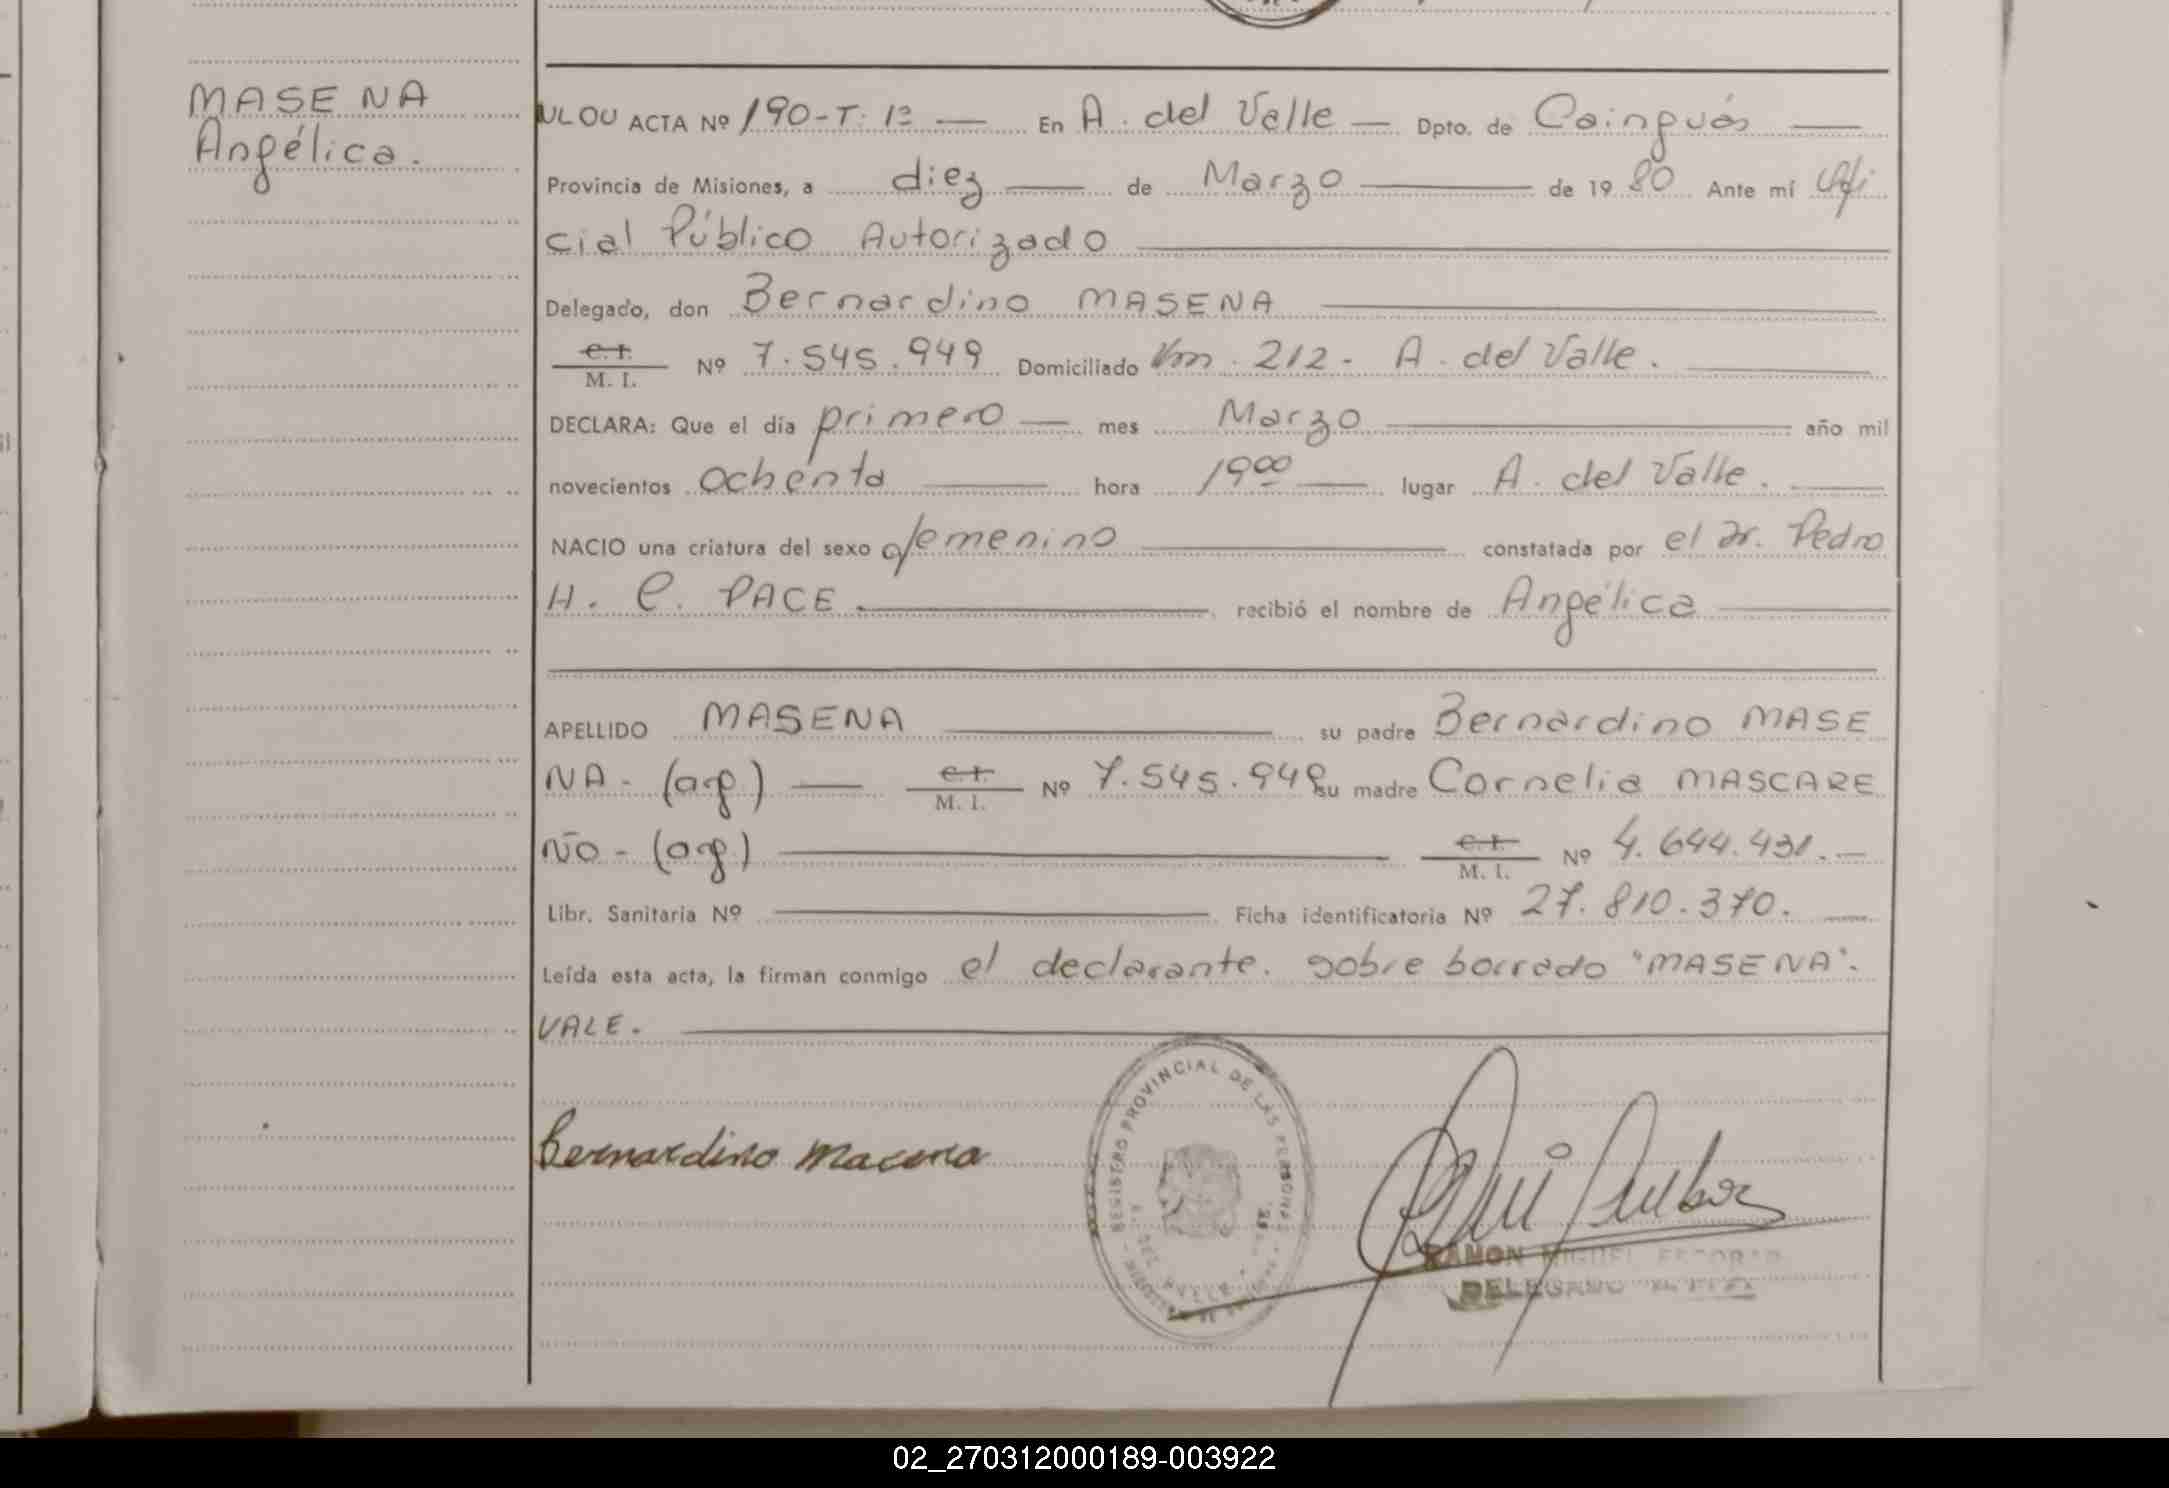 MASENA
Angélica.
ULOU ACTA Nº 190-T. 1º — En A. del Valle — Dpto. de Cainguás —
Provincia de Misiones, a diez — de Marzo — de 1980 Ante mí Ofi
cial Público Autorizado
Delegado, don Bernardino MASENA
C. I.
M. I. Nº 7.545.949 Domiciliado Km. 212- A. del Valle.
DECLARA: Que el día primero — mes Marzo — año mil
novecientos ochenta — hora 19⁰⁰ — lugar A. del Valle.
NACIO una criatura del sexo femenino — constatada por el Dr. Pedro
H. C. PACE. — recibió el nombre de Angélica —
APELLIDO MASENA — su padre Bernardino MASE
NA- (arg.) — C. I.
M. I. Nº 7.545.949 su madre Cornelia MASCARE
ÑO- (arg.) — C. I.
M. I. Nº 4.644.431.—
Libr. Sanitaria Nº — Ficha identificatoria Nº 27.810.370. —
Leída esta acta, la firman conmigo el declarante. sobre borrado "MASENA".
VALE.
Bernardino Macena
REGISTRO PROVINCIAL DE LAS PERSONAS
A. DEL VALLE
RAMON MIGUEL ESCOBAR
DELEGADO
02_270312000189-003922